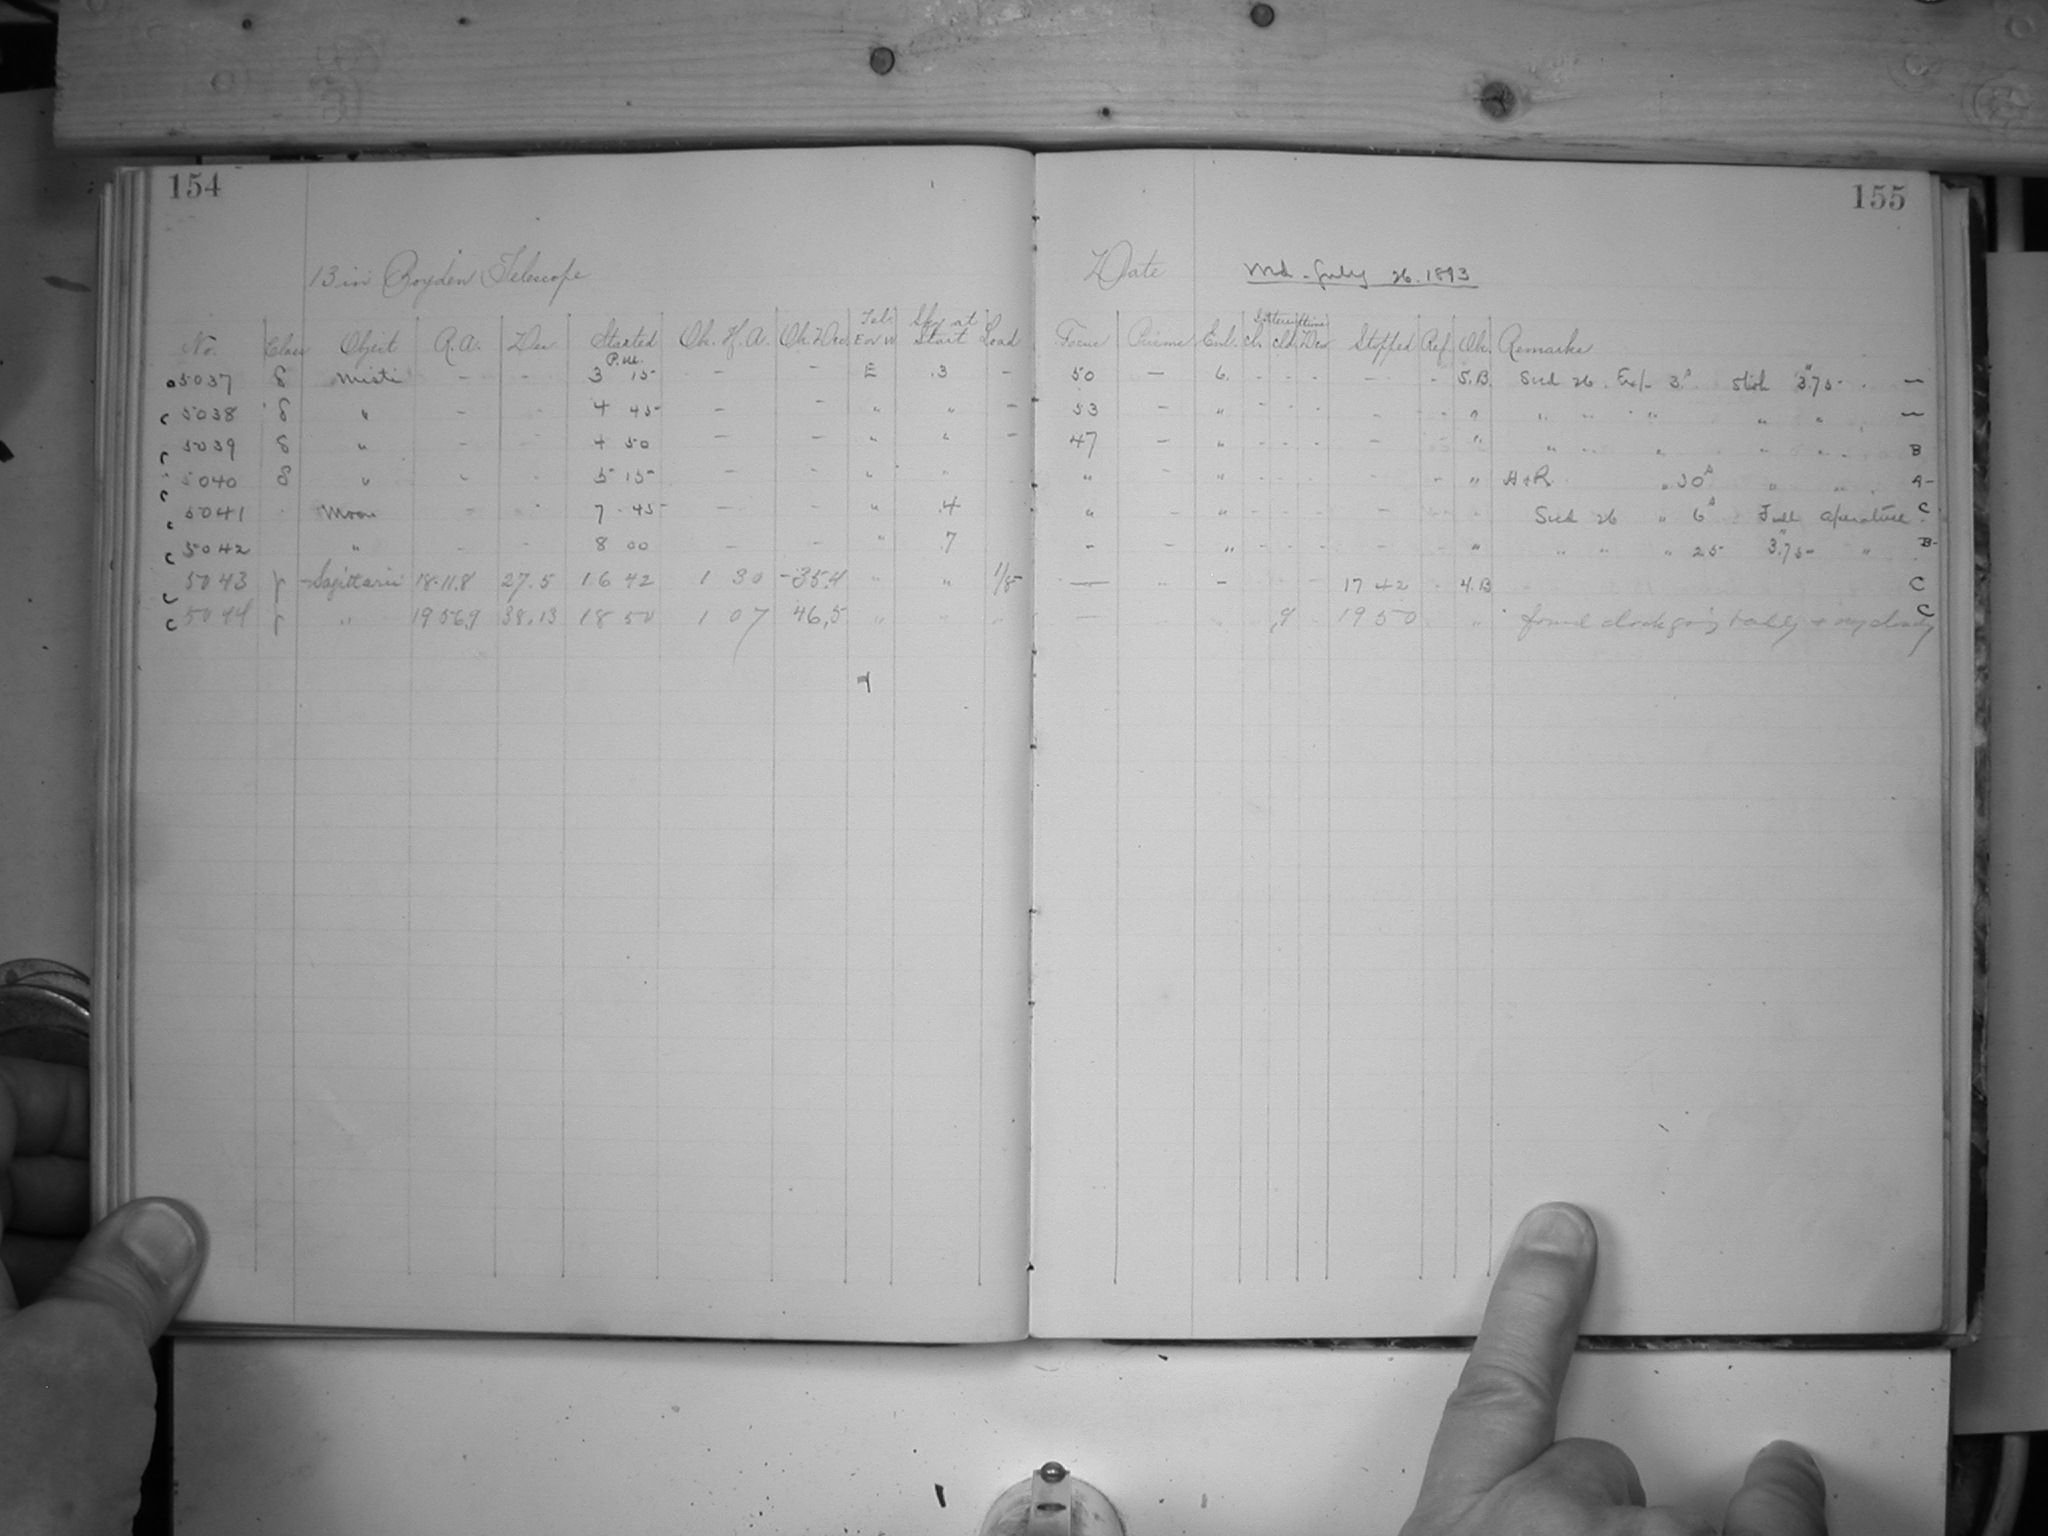 154
155
13 in Boyden Telescope
Date Wd. July 26. 1893
No. Class Object R.A. Dec Started Ob. H.A. Ob. Dec Tel. E or W Sky at Start Load Focus Prisms Enl. Ch. Clk. Dev Stopped Ref. Ob. Remarks
P.M.
5037 8 Misti - - 3 15 - - E .3 - 50 - 6. - - - - - S.B. Seed 26. Exp. 3.s Stop 3.75 - —
5038 8 " - - 4 45 - - " " - 53 - " - - - - - " " " " " " " —
5039 8 " - - 4 50 - - " " - 47 - " - - - - - " " " " " " B
5040 8 " - - 5 15 - - " " " - " - - - - - " A+R " 30s " " A-
5041 Moon - - 7 45 - - " .4 " - " - - - - - " Seed 26 " 6s Full aperature. C
5042 " - - 8 00 - - " .7 - - " - - - - - " " " " 25 3.75 " B-
5043 f Sagittarii 18.11.8 27.5 16 42 1 30 -35.4 " " 1/8 — " - 17 42 - 4.B C
5044 f " 19 56.9 38.13 18 50 1 07 46.5 " " " — ,9 19 50 " found clock going badly + very cloudy C